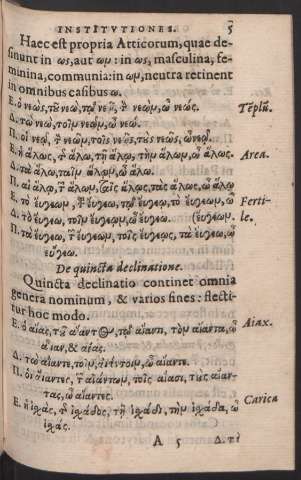 INSTITVTIONES. 5
Haec est propria Atticorum, quae de-
sinunt in ως, aut ωμ: in ως, masculina, fe-
minina, communia: in ωμ, neutra retinent
in omnibus casibus ω.
Ε. ὁ νεὼς, τοῦ νεὼ, τῷ νεῷ, τ νεὼμ, ὦ νεὼς. Tēplū.
Δ. τὼ νεὼ, τοῖμ νεῴμ, ὦ νεὼ.
Π. οἱ νεῲ, τ νεὼμ, τοῖς νεῲς, τοὺς νεὼς, ὦ νεῲ.
Ε. ἡ ἅλως, τ ἅλω, τῇ ἅλῳ, τὴμ ἅλωμ, ὦ ἅλως. Area.
Δ. τὰ ἅλω, ταῖμ ἅλῳμ, ὦ ἅλω.
Π. αἱ ἅλῳ, τ ἅλωμ, ταῖς ἅλῳς, τὰς ἅλως, ὦ ἅλῳ
Ε. τὸ ἔυγεωμ, τ ἔυγεω, τῷ ἔυγεῳ, τὸ ἔυγεωμ, ὦ Ferti-
Δ. τὼ ἔυγεω, τοῖμ ἔυγεῳμ, ὦ ἔυγεω. (ἔυγεωμ. le.
Π. τὰ ἔυγεω, τ ἔυγεωμ, τοῖς ἔυγεῳς, τὰ ἔυγεω, ὦ
ἔυγεω.
De quincta declinatione.
Quincta declinatio continet omnia
genera nominum, & varios fines: flecti-
tur hoc modo.
Ε. ὁ αἴας, τοῦ αἴαντος, τῷ αἴαντι, τὸμ αἴαντα, ὦ Aiax.
αἶαν, & αἴας.
Δ. τὼ αἴαντε, τοῖμ αἰάντοιμ, ὦ αἴαντε.
Π. οἱ αἴαντες, τ αἰάντωμ, τοῖς αἴασι, τοὺς αἴαν-
τας, ὦ αἴαντες.
Ε. ἡ ἰχὰς, τ ἰχάδος, τῇ ἰχάδι, τὴμ ἰχάδα, ὦ Carica
ἰχάς.
A 5 Δ. τὰ